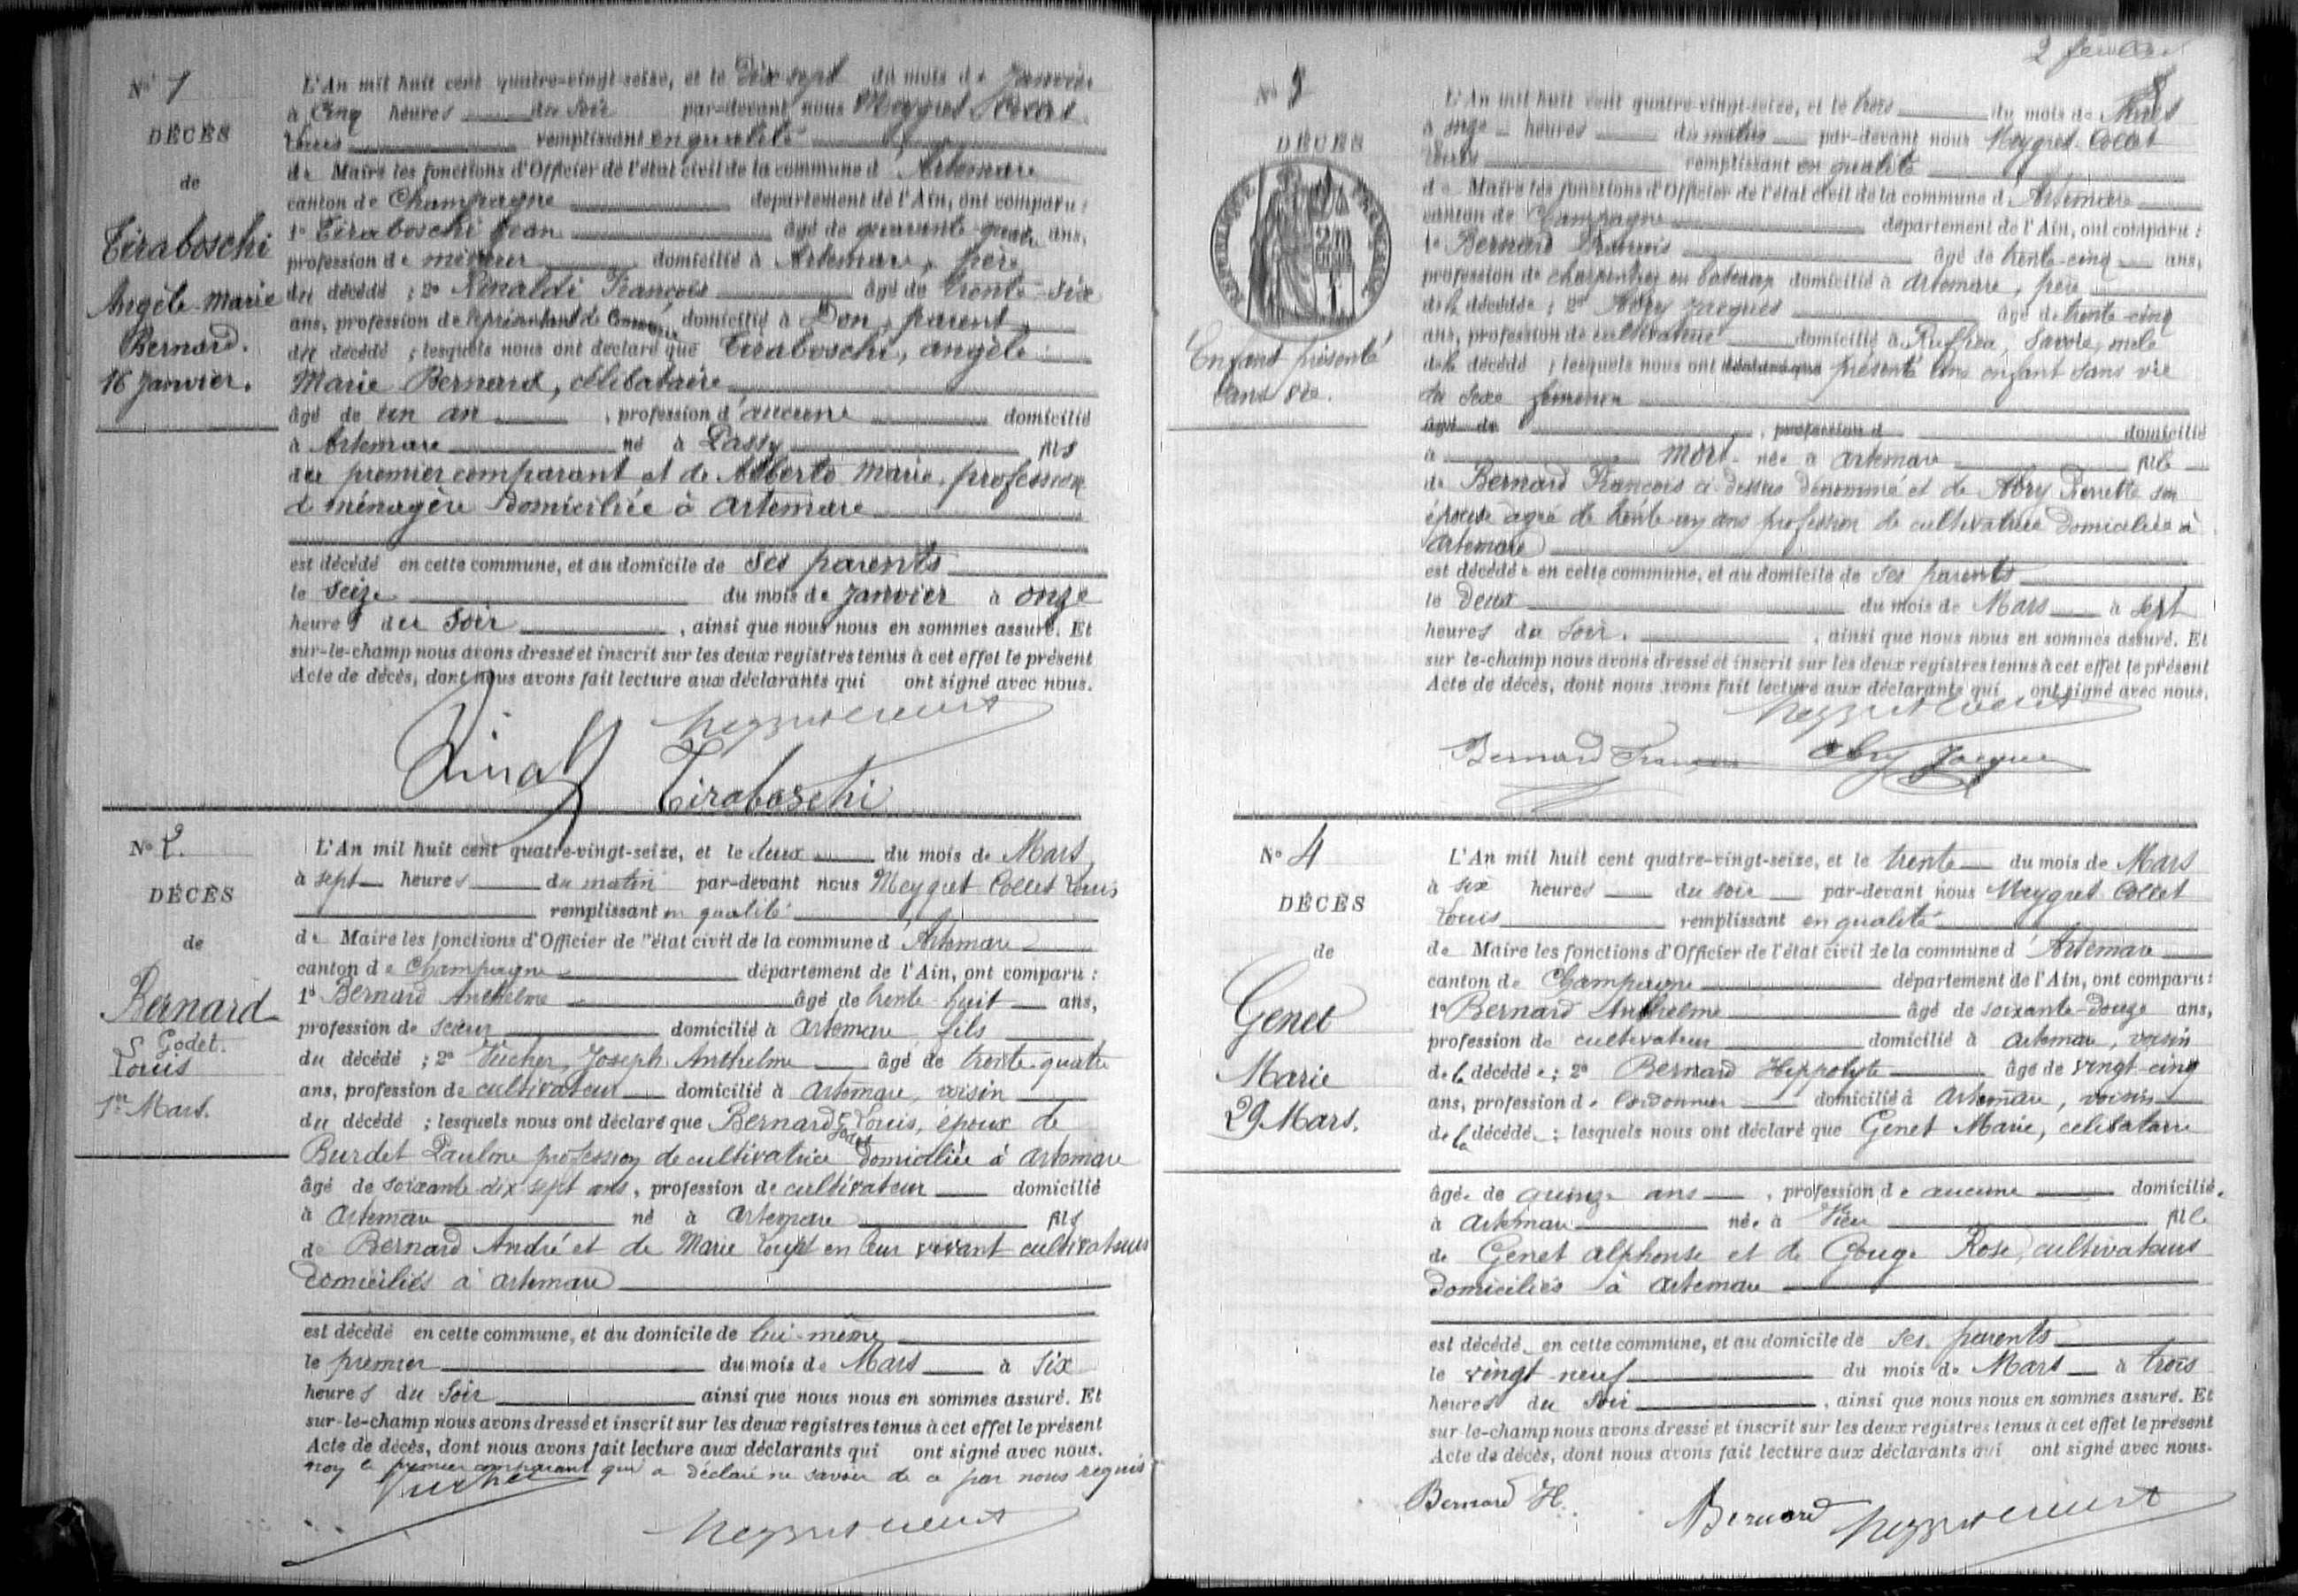 N° 1
DÉCÈS
de
Tiraboschi
Angèle-Marie
Bernard.
16 Janvier.
L'An mil huit cent quatre-vingt-seize, et le dix sept du mois de Janvier
à Cinq heures du soir par-devant nous Meygret Collet
Louis remplissant en qualité
de Maire les fonctions d'Officier de l'état civil de la commune d'Artemare
canton de Champagne département de l'Ain, ont comparu :
1° Tiraboschi Jean âgé de quarante-quatre ans,
profession de mineur domicilié à Artemare, père
du décédé ; 2° Rinaldi François âgé de trente-six
ans, profession de représentant de domicilié à Don, parent
du décédé ; lesquels nous ont déclaré que Tiraboschi, angèle
Marie Bernard, célibataire
âgé de un an , profession d'aucune domicilié
à Artemare né à Passy fils
du premier comparant et de Alberto Marie, profession
de ménagère domiciliée à Artemare
est décédé en cette commune, et au domicile de ses parents
le seize du mois de Janvier à onze
heures du soir , ainsi que nous nous en sommes assuré. Et
sur-le-champ nous avons dressé et inscrit sur les deux registres tenus à cet effet le présent
Acte de décès, dont nous avons fait lecture aux déclarants qui ont signé avec nous.
Tiraboschi
N° 2.
DÉCÈS
de
Bernard
S Godet.
Louis
1er Mars.
L'An mil huit cent quatre-vingt-seize, et le deux du mois de Mars,
à sept heures du matin par-devant nous Meygret Collet Louis
remplissant en qualité
de Maire les fonctions d'Officier de l'état civil de la commune d'Artemare
canton de Champagne département de l'Ain, ont comparu :
1° Bernard Anthelme âgé de trente-huit ans,
profession de scieur domicilié à Artemare fils
du décédé ; 2° Vucher, Joseph Anthelme âgé de trente-quatre
ans, profession de cultivateur domicilié à Artemare, voisin
du décédé ; lesquels nous ont déclaré que Bernard S Godet Louis, époux de
Burdet Pauline profession de cultivatrice domiciliée à Artemare
âgé de soixante dix sept ans, profession de cultivateur domicilié
à Artemare né à Artemare fils
de Bernard André et de Marie en leur vivant cultivateurs
domiciliés à artemare
est décédé en cette commune, et au domicile de lui-même
le premier du mois de Mars à six
heures du soir ainsi que nous nous en sommes assuré. Et
sur-le-champ nous avons dressé et inscrit sur les deux registres tenus à cet effet le présent
Acte de décès, dont nous avons fait lecture aux déclarants qui ont signé avec nous.
non le premier comparant qui a déclaré ne savoir de ce par nous requis
Vucher
2
N° 3
DÉCÈS
RÉPUBLIQUE FRANÇAISE
Enfant présenté
sans vie.
L'An mil huit cent quatre-vingt-seize, et le trois du mois de Mars
à onze heures du matin par-devant nous Meygret-Collet
Louis remplissant en qualité
de Maire les fonctions d'Officier de l'état civil de la commune d'Artemare
canton de Champagne département de l'Ain, ont comparu :
1° Bernard François âgé de trente-cinq ans,
profession de charpentier en bateaux domicilié à Artemare, père
de la décédée ; 2° Abry Jacques âgé de trente-cinq
ans, profession de cultivateur domicilié à Ruffieu, Savoie, oncle
de la décédé ; lesquels nous ont déclaré que présenté un enfant sans vie
du sexe féminin
âgé de , profession d domicilié
à mort-née à Artemare fille
de Bernard François ci-dessus dénommé et de Abry Pierrette son
épouse âgée de trente-un ans profession de cultivatrice domiciliée à
Artemare
est décédée en cette commune, et au domicile de ses parents
le deux du mois de Mars à sept
heures du soir. , ainsi que nous nous en sommes assuré. Et
sur-le-champ nous avons dressé et inscrit sur les deux registres tenus à cet effet le présent
Acte de décès, dont nous avons fait lecture aux déclarants qui ont signé avec nous.
Bernard François Abry Jacques
N° 4
DÉCÈS
de
Genet
Marie
29 Mars.
L'An mil huit cent quatre-vingt-seize, et le trente du mois de Mars
à six heures du soir par-devant nous Meygret-Collet
Louis remplissant en qualité
de Maire les fonctions d'Officier de l'état civil de la commune d'Artemare
canton de Champagne département de l'Ain, ont comparu :
1° Bernard Anthelme âgé de soixante-douze ans,
profession de cultivateur domicilié à Artemare, voisin
de la décédée ; 2° Bernard Hippolyte âgé de vingt-cinq
ans, profession de cordonnier domicilié à Artemare, voisin
de la décédée ; lesquels nous ont déclaré que Genet Marie, célibataire
âgée de quinze ans , profession de aucune domiciliée
à Artemare née à Vieu fille
de Genet alphonse et de Gouge Rose, cultivateurs
domiciliés à Artemare
est décédée en cette commune, et au domicile de ses parents
le vingt-neuf du mois de Mars à trois
heures du soir , ainsi que nous nous en sommes assuré. Et
sur-le-champ nous avons dressé et inscrit sur les deux registres tenus à cet effet le présent
Acte de décès, dont nous avons fait lecture aux déclarants qui ont signé avec nous.
Bernard H. Bernard